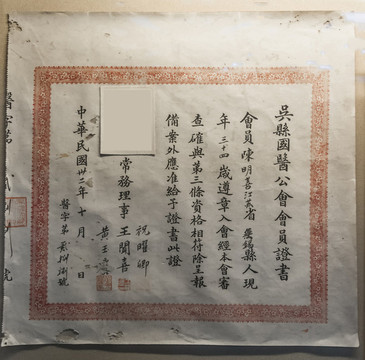 吳縣國醫公會會員證書
會員陳明善江蘇省無錫縣人現
年三十四歲遵章入會經本會審
查確與第三條資格相符除呈報
備案外應准給予證書此證
常務理事
祝曜卿
王聞喜
中華民國卅二年十月 日
醫字第貳捌捌號